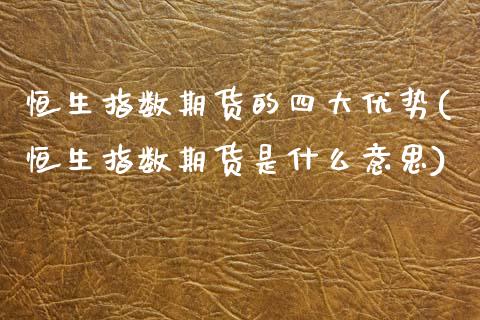 恒生指数期货的四大优势(
恒生指数期货是什么意思)